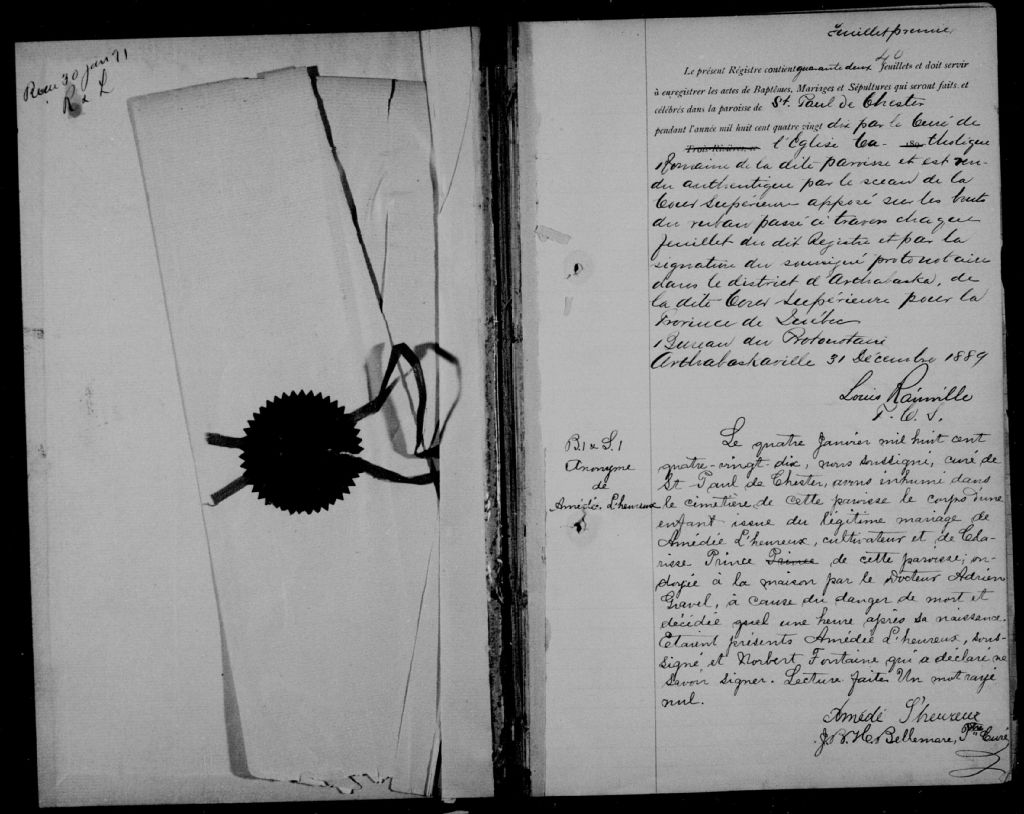 Recu 30 Jan 91
R & L
Feuillet premier
40
Le présent Régistre contient quarante deux feuillets et doit servir
à enregistrer les actes de Baptêmes, Mariages et Sépultures qui seront faits et
célébrés dans la paroisse de St. Paul de Chester
pendant l'année mil huit cent quatre vingt dix par le Curé de
Trois-Rivières, ce l'Eglise Ca- 189 tholique
Romaine de la dite parroisse et est ren-
du authentique par le sceau de la
Cour Supérieure apposé sur les bouts
du ruban passé à travers chaque
feuillet du dit Registre et par la
signature du soussigné protonotaire
dans le district d'Arthabaska, de
la dite Cour Supérieure pour la
Province de Québec
Bureau du Protonotaire
Arthabaskaville 31 Décembre 1889
Louis Rainville
P. C. S.
B.1 & S.1
Anonyme
de
Amédée L'heureux
Le quatre Janvier mil huit cent
quatre-vingt-dix, nous soussigné, curé de
St Paul de Chester, avons inhumé dans
le cimetière de cette paroisse le corps d'une
enfant issue du légitime mariage de
Amédée L'heureux, cultivateur et de Cla-
risse Prince Prince de cette paroisse; on-
doyée à la maison par le Docteur Adrien
Gravel, à cause du danger de mort et
décidée quel une heure après sa naissance.
Etaient présents Amédée L'heureux, sous-
signé, et Norbert Fontaine qui a déclaré ne
savoir signer. Lecture faite. Un mot rayé
nul.
Amédé L'heureux
J. N. H. Bellemare, Ptre Curé